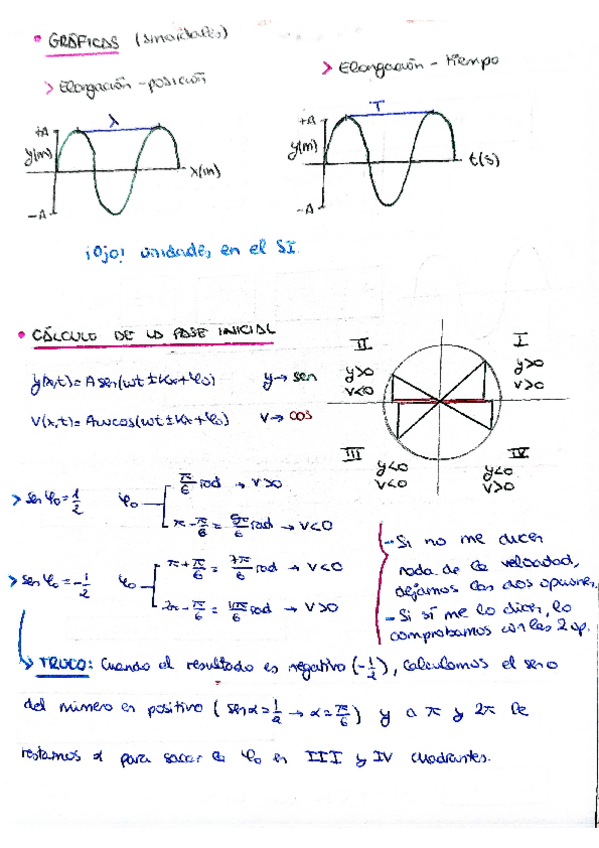 • GRÁFICAS (sinoidales)
> Elongación - posición
> Elongación - tiempo
+A
λ
y(m)
x(m)
-A
+A
T
y(m)
t(s)
-A
¡Ojo! unidades en el SI.
• CÁLCULO DE LA FASE INICIAL
y(x,t) = A sen(ωt ± kx + φ₀) y → sen
v(x,t) = Aωcos(ωt ± kx + φ₀) v → cos
II
y>0
v<0
I
y>0
v>0
III
y<0
v<0
IV
y<0
v>0
> sen φ₀ = 1/2 φ₀
π/6 rad → v>0
π - π/6 = 5π/6 rad → v<0
> sen φ₀ = -1/2 φ₀
π + π/6 = 7π/6 rad → v<0
2π - π/6 = 11π/6 rad → v>0
- Si no me dicen
nada de la velocidad,
dejamos las dos opciones.
- Si sí me lo dicen, lo
comprobamos con las 2 op.
> TRUCO: Cuando el resultado es negativo (-1/2), calculamos el seno
del número en positivo (sen α = 1/2 → α = π/6) y a π y 2π le
restamos α para sacar la φ₀ en III y IV cuadrantes.